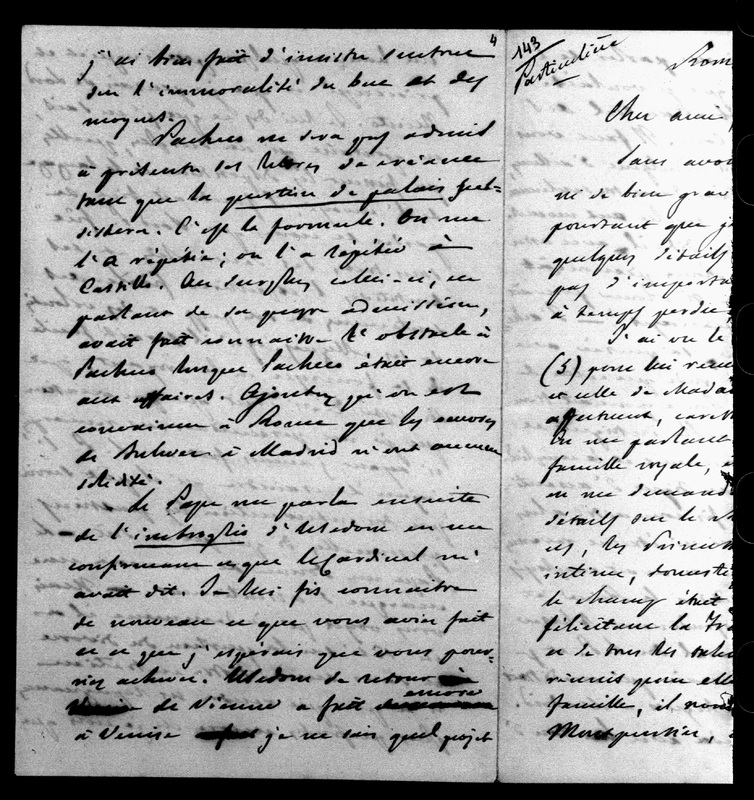 4
j'ai bien fait d'insister surtout
sur l'immoralité du but et des
moyens.
Pacheco ne sera pas admis
à présenter ses lettres de créance
tant que la question de palais sub-
sistera. C'est la formule. On me
l'a répétée; on l'a répétée à
Castillo. Au surplus celui-ci, en
parlant de sa propre admission,
avait fait connaitre l'obstacle à
Pacheco lorsque Pacheco était encore
aux affaires. Ajoutez qu'on est
convaincu à Rome que les
de Bulwer à Madrid n'ont aucune
solidité.
Le Pape me parla ensuite
de l'imbroglio d'Usedom en me
confirmant ce que le Cardinal m'
avait dit. Je lui fis connaitre
de nouveau ce que vous aviez fait
et ce que j'espérais que vous pour-
riez achever. Usedom de retour
de Vienne a fait encore
à Venise je ne sais quel projet
143
Particulière
Rom
Cher ami,
Sans avoi
ni de bien grav
pourtant que je
quelques détails
pas d'importa
à temps perdu,
J'ai vu le
(5) pour lui rem
et celle de Mada
affectueux, cares
En me parlant
famille royale,
en me demand
détails sur le
les Princes
intime, domesti
le charme était
félicitant la Fra
et de tous les tale
réunis pour elle
famille, il nom
Montpensier,